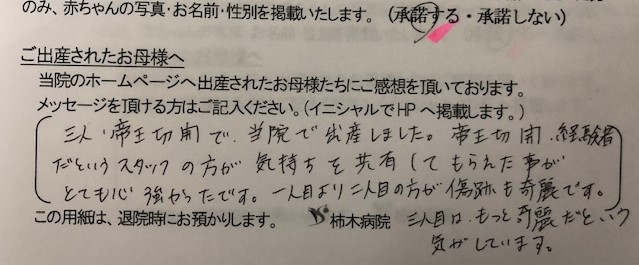 のみ、赤ちゃんの写真・お名前・性別を掲載いたします。(承諾する・承諾しない)
ご出産されたお母様へ
当院のホームページへ出産されたお母様たちにご感想を頂いております。
メッセージを頂ける方はご記入ください。(イニシャルでHPへ掲載します。)
三人、帝王切開で、当院で出産しました。帝王切開、経験者
だというスタッフの方が気持ちを共有してもらえた事が
とても心強かったです。一人目より二人目の方が傷跡も奇麗です。
この用紙は、退院時にお預かりします。 柿木病院 三人目は、もっと奇麗だという
気がしています。